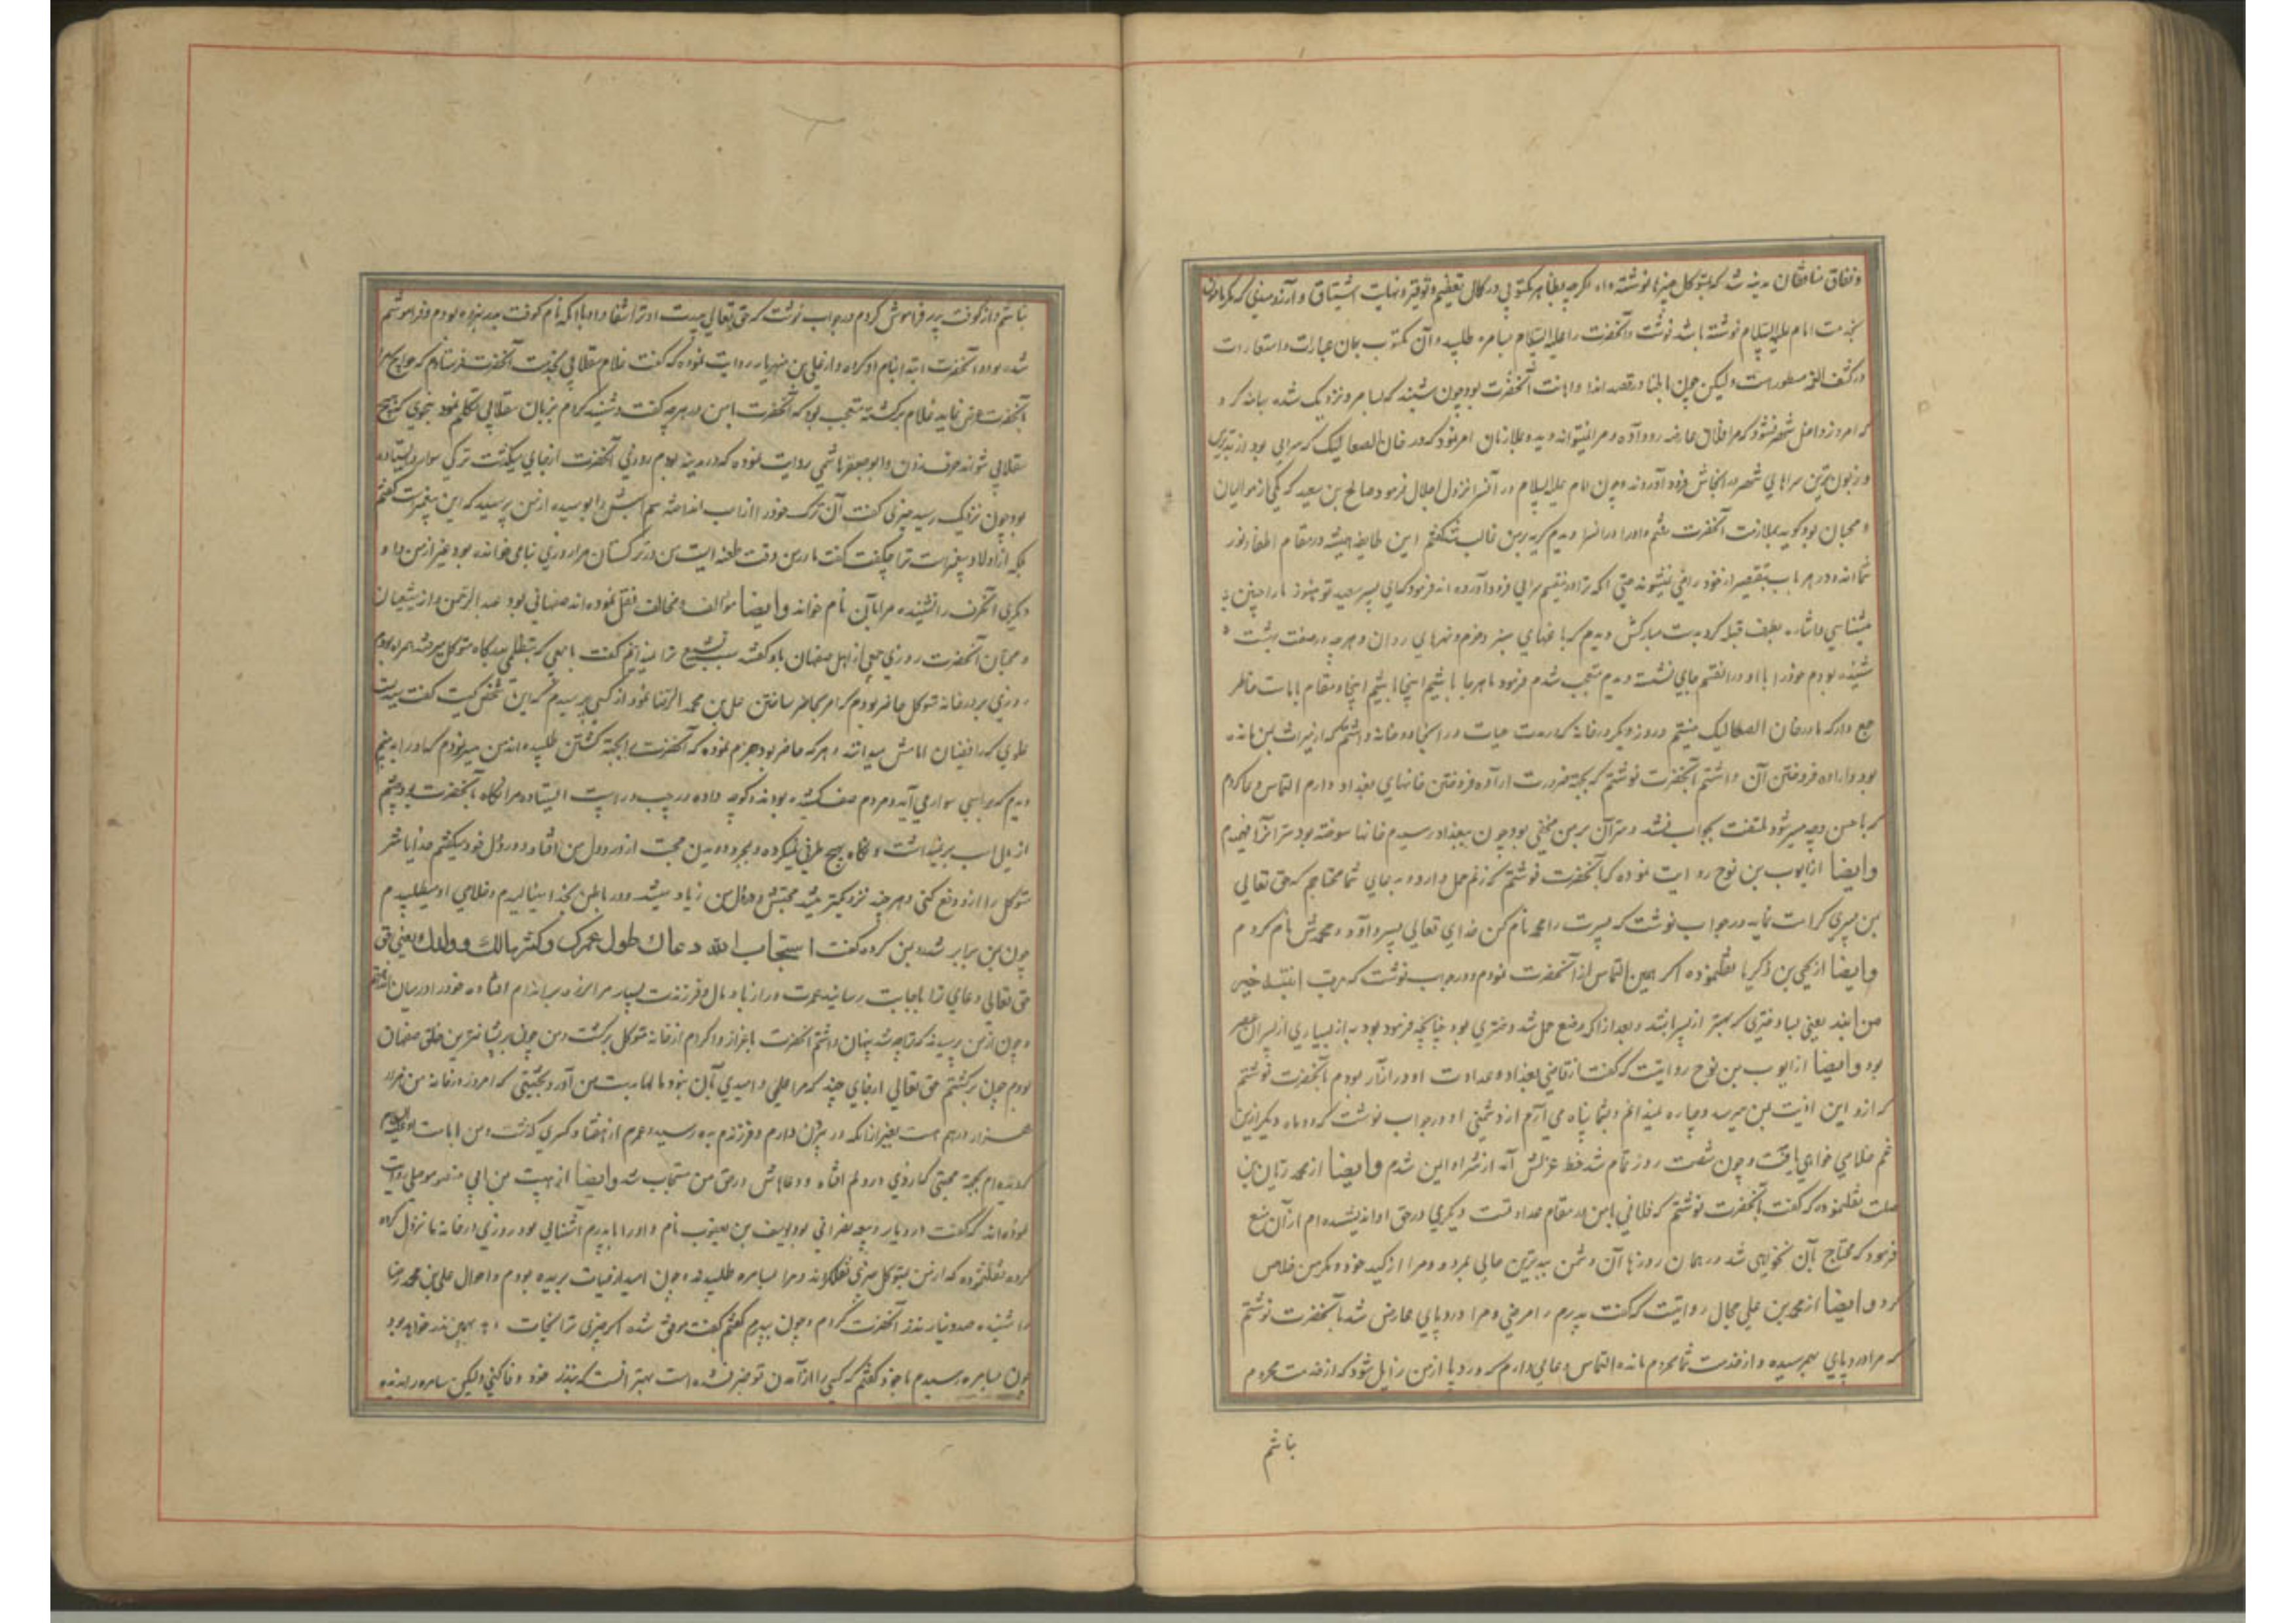 و نفاق منافقان مدینه شد که بمتوکل چیزها نوشته‌اند اگرچه بظاهر مکتوبی در کمال تعظیم و توقیر و نهایت اشتیاق و آرزومندی که
بخدمت امام علیه السلام نوشته باشد نوشت و آنحضرت را علیه السلام بسامره طلبید و آن مکتوب بهمان عبارات و استعارات
در کشف الغمه مسطور است ولیکن چون باطنا در قصد ایذا و اهانت آنحضرت بود چون شنید که بسامره نزدیک شده بهانه کرد
که امروز داخل شهر نشود که مرا عارضه رو داده و مرا نمیتواند دید و بملازمان امر نمود که در خان الصعالیک که سرایی بود از بدترین
و زبون‌ترین سراهای شهر در آنجاش فرود آوردند و چون امام علیه السلام در آنسرا نزول اجلال فرمود صالح بن سعید که یکی از موالیان
و محبان بود گوید بملازمت آنحضرت رفتم و او را در آنسرا دیدم گریه بر من غالب شد گفتم این طایفه همیشه در مقام اطفاء نور
شمااند و در هر باب بتقصیر از خود راضی نمیشوند حتی آنکه ترا در نیقسم سرایی فرود آورده‌اند فرمود که ای پسر سعید تو هنوز ما را چنین
میشناسی و اشاره بطرف قبله کرد بدست مبارکش دیدم که باغهای سبز و خرم و نهرهای روان و هرچه در صفت بهشت
شنیده بودم خود را با او در آنقسم جایی نشسته دیدم متعجب شدم فرمود ما هرجا باشیم اینجا باشیم اینجا مقام ما است خاطر
جمع دار که ما در خان الصعالیک نیستیم و روز دیگر در خانه که مدت حیات در آنجا بود خانه داشتم که از میراث بمن مانده
بود و اراده فروختن آن داشتم بآنحضرت نوشتم که بجهة ضرورت اراده فروختن خانهای بغداد دارم التماس دعا کردم
که باحسن وجه میسر شود ملتفت بجواب نشد و سر آن بر من مخفی بود چون ببغداد رسیدم خانها سوخته بود سر آنرا فهمیدم
وایضا از ایوب بن نوح روایت نموده که بآنحضرت نوشتم که زنم حمل دارد و بدعای شما محتاجم که حق تعالی
بمن پسری کرامت نماید در جواب نوشت که پسرت را محمد نام کن خدای تعالی پسر داد و محمدش نام کردم
وایضا از یحیی بن زکریا نقل نموده اکر همین التماس از آنحضرت نمودم و در جواب نوشت که رب ابنة خیر
من ابن یعنی بسا دختری که بهتر از پسر باشد و بعد از آنکه وضع حمل شد دختری بود چنانچه فرموده بود به از بسیاری از پسران عصر
بود وایضا از ایوب بن نوح روایتست که گفت از قاضی بغداد و عداوت او در آزار بودم بآنحضرت نوشتم
که از و این اذیت بمن میرسد و چاره نمیدانم و بشما پناه می‌آرم از دشمنی او در جواب نوشت که دو ماه دیگر ازین
غم خلاصی خواهی یافت و چون شصت روز تمام شد خط عزلش آمد از شر او ایمن شدم وایضا از محمد ریان بن
صلت نقل نموده که گفت بآنحضرت نوشتم که فلانی با من در مقام عداوتست و مکری در حق او اندیشیده‌ام از آن منع
فرمود که محتاج بآن نخواهی شد در همان روزها آن دشمن ببدترین حالی بمرد و مرا از کید خود و مکر من خلاص
کرد وایضا از محمد بن علی حجال روایتست که گفت پدرم را مرضی و مرا درد پای عارض شد بآنحضرت نوشتم
که مرا درد پای بهم رسیده و از خدمت شما محروم مانده التماس دعایی دارم که درد پا از من زایل شود که از خدمت محروم
نباشم
نباشم و از کوفت پدر فراموش کردم در جواب نوشت که حق تعالی پدرت و ترا شفا دهد با آنکه نام کوفت پدر نبرده بودم و فراموشم
شده بود و آنحضرت ابتدا بنام او کرد و از علی بن مهزیار روایت نموده که گفت غلام سقلابی بخدمت آنحضرت فرستادم که حوایج مرا
بآنحضرت عرض نماید غلام برگشته متعجب بود که آنحضرت با من در هرچه گفت و شنید کردم بزبان سقلابی تکلم نمود بنحوی که هیچ
سقلابی نتواند حرف زدن و ابو جعفر هاشمی روایت نموده که در مدینه بودم روزی آنحضرت از جایی میگذشت ترکی سوار ایستاده
بود چون نزدیک رسید چیزی گفت آن ترک خود را از اسب انداخته سم اسبش را بوسیده از من پرسید که این پیغمبرست گفتم
بلکه از اولاد پیغمبر است ترا چه گفت گفت مادر من وقت طفولیت من در ترکستان مرا روزی بنامی خوانده بود غیر از من و او
دیگری آنحرف را نشنیده مرا بآن نام خواند وایضا مؤالف و مخالف نقل نموده‌اند صفهانی بود عبد الرحمن نام از شیعیان
و محبان آنحضرت روزی جمعی از اهل صفهان باو گفتند سبب تشیع ترا نمیدانیم گفت با جمعی که بتظلم بدرگاه متوکل میرفتند همراه بودم
روزی بر در خانه متوکل حاضر بودم که امر بحاضر ساختن علی بن محمد الرضا نمود از کسی پرسیدم که این شخص کیست گفت سیدیست
علوی که رافضیان امامش میدانند و هر که حاضر بود جزم نموده که آنحضرت را بجهة کشتن طلبیده‌اند من صبر نمودم که او را به بینم
دیدم که بر اسبی سوار می‌آید و مردم صف کشیده بودند و کوچه داده در چپ و راست ایستاده مرا نگاه بآنحضرت بود چشم
از یال اسب بر نمیداشت و نگاه بهیچ طرفی نمیکرد و بمجرد دیدن محبت از و در دل من افتاد و در دل خود میگفتم خدایا شر
متوکل را از و دفع کنی و هرچند نزدیکتر میشد محبتش در دل من زیاد میشد و در باطن بخدا مینالیدم و خلاصی او میطلبیدم
چون بمن برابر شد رو بمن کرده گفت استجاب الله دعاك طول عمرك وکثر مالك وولدك یعنی
حق تعالی دعای ترا باجابت رسانید عمرت دراز باد و مال و فرزندت بسیار مرا لرزه بر اندام افتاده خود را در میان
و چون از من پرسیدند که ترا چه شد پنهان داشتم آنحضرت باعزاز و اکرام از خانه متوکل برگشت و من چون پریشانترین خلق صفهان
بودم چون برگشتم حق تعالی از جای چند که مرا علمی و امیدی بآن نبود مالها بدست من آورد بحیثیتی که امروز در خانه من هزار
هزار درهم هست بغیر از آنکه در بیرون دارم و فرزندم به ده رسید و عمرم از هفتاد و کسری گذشت و من بامامت او
گرویده‌ام بجهة محبتی که آنروزی در دلم افتاد و دعایش در حق من مستجاب شد وایضا از هبت بن ابی منصور موصلی روایت
نموده‌اند که گفت در دیار ربیعه نصرانی بود یوسف بن یعقوب نام و او را با پدرم آشنایی بود روزی در خانه ما نزول کرد
کرده نقل نموده که از من بمتوکل چیزی نقل کرده‌اند و مرا بسامره طلبیده چون امید از حیات بریده بودم و احوال علی بن محمد رضا
را شنیده صد دینار نذر آنحضرت کردم و چون بپدرم گفتم گفت موفق شده اگر چیزی ترا نجات دهد همین نذر خواهد بود
چون بسامره رسیدم با خود گفتم که کسی را از آمدن تو خبر نشده است بهتر آنست که بنذر خود وفا کنی ولیکن سامره را ندیده